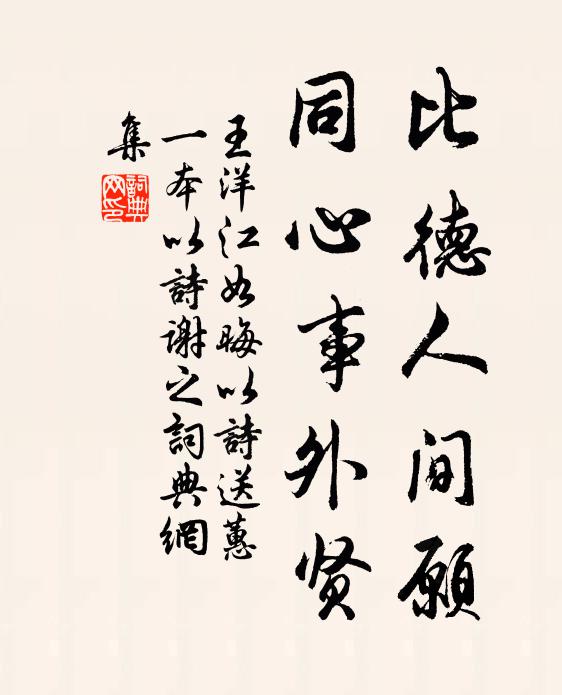 比德人间願
同心事外贤
王洋江如晦以詩送蕙
一本以詩谢之詞典網
集
詞典
网印